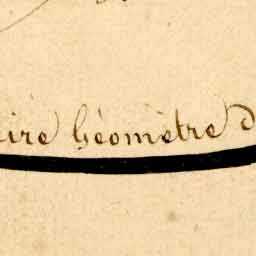 ire Géomètre d